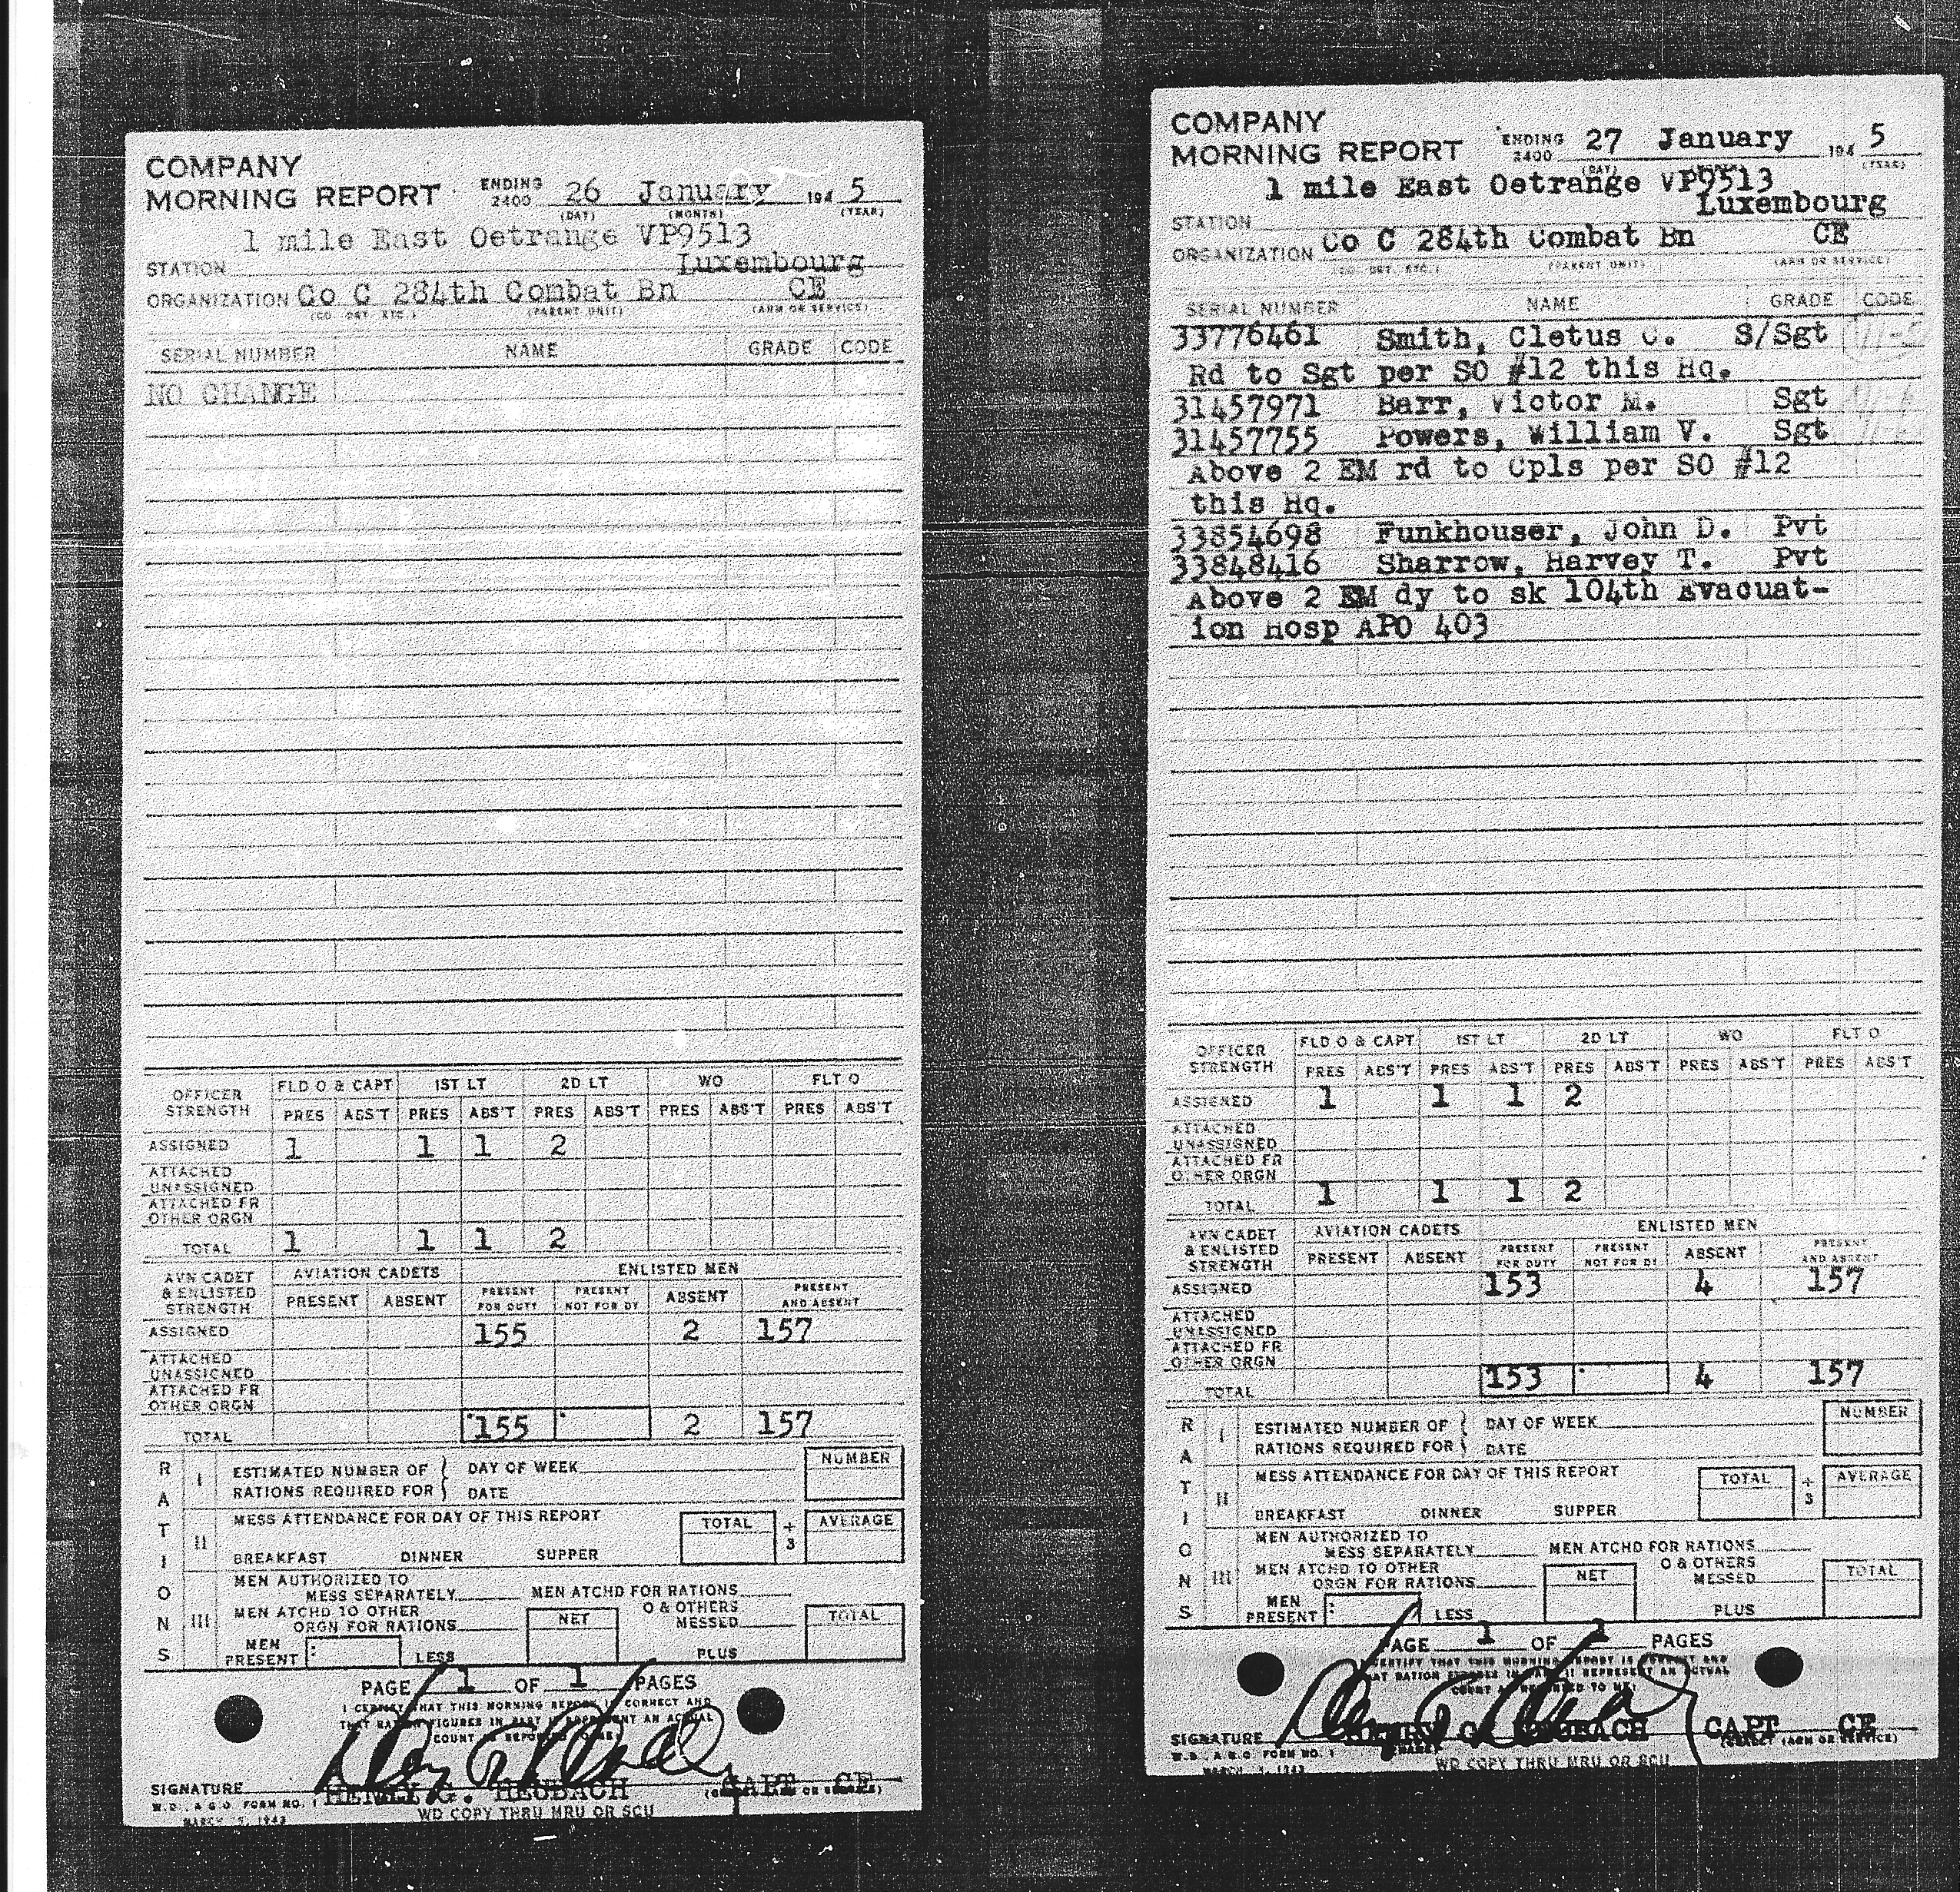 COMPANY
MORNING REPORT ENDING 2400 26 January 194 5
(DAY) (MONTH) (YEAR)
1 mile East Oetrange VP9513
STATION Luxembourg
ORGANIZATION Co C 284th Combat Bn CE
(CO. DET. ETC.) (PARENT UNIT) (ARM OR SERVICE)
SERIAL NUMBER NAME GRADE CODE
NO CHANGE
OFFICER STRENGTH FLD O & CAPT 1ST LT 2D LT WO FLT O
PRES ABS'T PRES ABS'T PRES ABS'T PRES ABS'T PRES ABS'T
ASSIGNED 1 1 1 2
ATTACHED
UNASSIGNED
ATTACHED FR
OTHER ORGN
TOTAL 1 1 1 2
AVN CADET & ENLISTED STRENGTH AVIATION CADETS ENLISTED MEN
PRESENT ABSENT PRESENT FOR DUTY PRESENT NOT FOR DY ABSENT PRESENT AND ABSENT
ASSIGNED 155 2 157
ATTACHED
UNASSIGNED
ATTACHED FR
OTHER ORGN
TOTAL 155 2 157
RATIONS
I ESTIMATED NUMBER OF DAY OF WEEK NUMBER
RATIONS REQUIRED FOR DATE
II MESS ATTENDANCE FOR DAY OF THIS REPORT TOTAL ÷ 3 AVERAGE
BREAKFAST DINNER SUPPER
III MEN AUTHORIZED TO
MESS SEPARATELY MEN ATCHD FOR RATIONS
MEN ATCHD TO OTHER O & OTHERS
ORGN FOR RATIONS NET MESSED TOTAL
MEN PRESENT LESS PLUS
PAGE 1 OF 1 PAGES
I CERTIFY THAT THIS MORNING REPORT IS CORRECT AND
THAT RATION FIGURES IN PART II REPRESENT AN ACTUAL
COUNT AS REPORTED TO ME:
SIGNATURE HENRY G. HEUBACH CAPT CE
W.D., A.G.O. FORM NO. 1
MARCH 5, 1943 WD COPY THRU MRU OR SCU
COMPANY
MORNING REPORT ENDING 2400 27 January 194 5
(DAY) (YEAR)
1 mile East Oetrange VP9513
STATION Luxembourg
ORGANIZATION Co C 284th Combat Bn CE
(CO. DET. ETC.) (PARENT UNIT) (ARM OR SERVICE)
SERIAL NUMBER NAME GRADE CODE
33776461 Smith, Cletus C. S/Sgt
Rd to Sgt per SO #12 this Hq.
31457971 Barr, Victor M. Sgt
31457755 Powers, William V. Sgt
Above 2 EM rd to Cpls per SO #12
this Hq.
33854698 Funkhouser, John D. Pvt
33848416 Sharrow, Harvey T. Pvt
Above 2 EM dy to sk 104th Evacuat-
ion Hosp APO 403
OFFICER STRENGTH FLD O & CAPT 1ST LT 2D LT WO FLT O
PRES ABS'T PRES ABS'T PRES ABS'T PRES ABS'T PRES ABS'T
ASSIGNED 1 1 1 2
ATTACHED
UNASSIGNED
ATTACHED FR
OTHER ORGN
TOTAL 1 1 1 2
AVN CADET & ENLISTED STRENGTH AVIATION CADETS ENLISTED MEN
PRESENT ABSENT PRESENT FOR DUTY PRESENT NOT FOR DY ABSENT PRESENT AND ABSENT
ASSIGNED 153 4 157
ATTACHED
UNASSIGNED
ATTACHED FR
OTHER ORGN
TOTAL 153 4 157
RATIONS
I ESTIMATED NUMBER OF DAY OF WEEK NUMBER
RATIONS REQUIRED FOR DATE
II MESS ATTENDANCE FOR DAY OF THIS REPORT TOTAL ÷ 3 AVERAGE
BREAKFAST DINNER SUPPER
III MEN AUTHORIZED TO
MESS SEPARATELY MEN ATCHD FOR RATIONS
MEN ATCHD TO OTHER O & OTHERS
ORGN FOR RATIONS NET MESSED TOTAL
MEN PRESENT LESS PLUS
PAGE 1 OF 1 PAGES
I CERTIFY THAT THIS MORNING REPORT IS CORRECT AND
THAT RATION FIGURES IN PART II REPRESENT AN ACTUAL
COUNT AS REPORTED TO ME:
SIGNATURE HENRY G. HEUBACH CAPT CE
W.D., A.G.O. FORM NO. 1
MARCH 5, 1943 WD COPY THRU MRU OR SCU